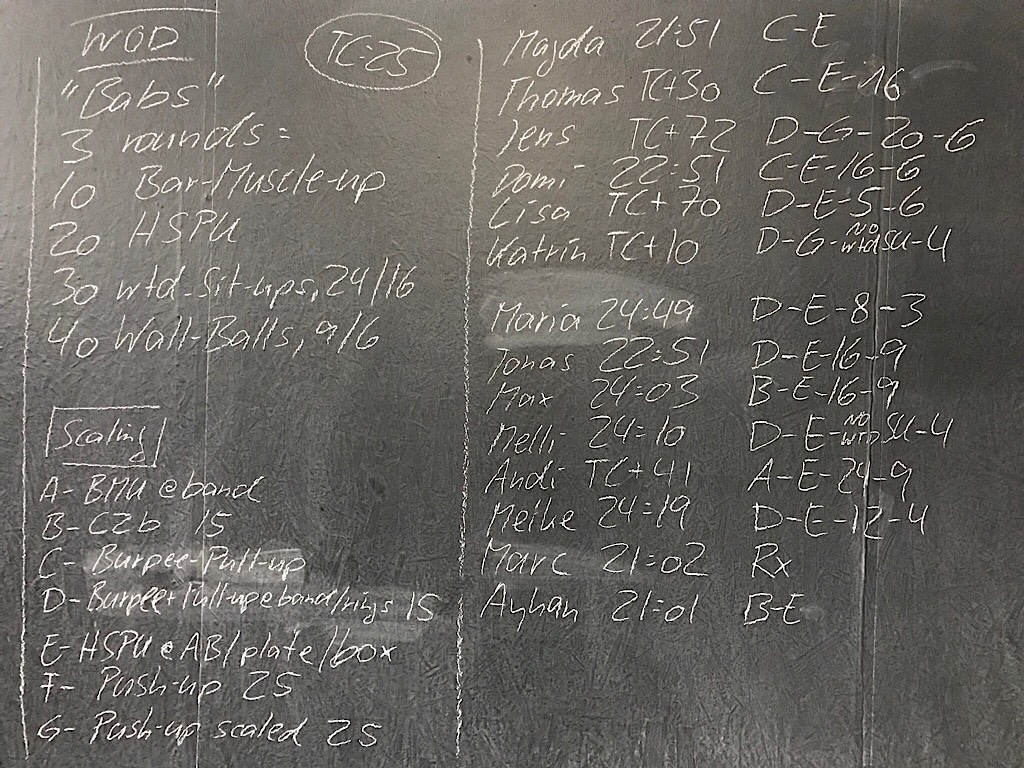 WOD
TC:25
"Babs"
3 rounds:
10 Bar-Muscle-up
20 HSPU
30 wtd-Sit-ups, 24/16
40 Wall-Balls, 9/6
Scaling
A- BMU @ band
B- C2b 15
C- Burpee-Pull-up
D- Burpee+Pull-up@band/rings 15
E- HSPU @ AB/plate/box
F- Push-up 25
G- Push-up scaled 25
Magda 21:51 C-E
Thomas TC+30 C-E-16
Jens TC+72 D-G-20-6
Domi 22:51 C-E-16-6
Lisa TC+70 D-E-5-6
Katrin TC+10 D-G-no wtd SU-4
Maria 24:49 D-E-8-3
Jonas 22:51 D-E-16-9
Max 24:03 B-E-16-9
Melli 24:10 D-E-no wtd SU-4
Andi TC+41 A-E-24-9
Meike 24:19 D-E-12-4
Marc 21:02 Rx
Ayhan 21:01 B-E